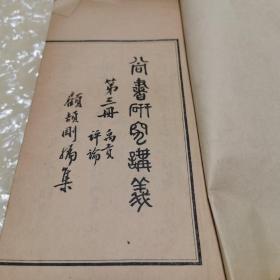 尚書研究講義
第三冊 禹貢
評論
顧頡剛編集